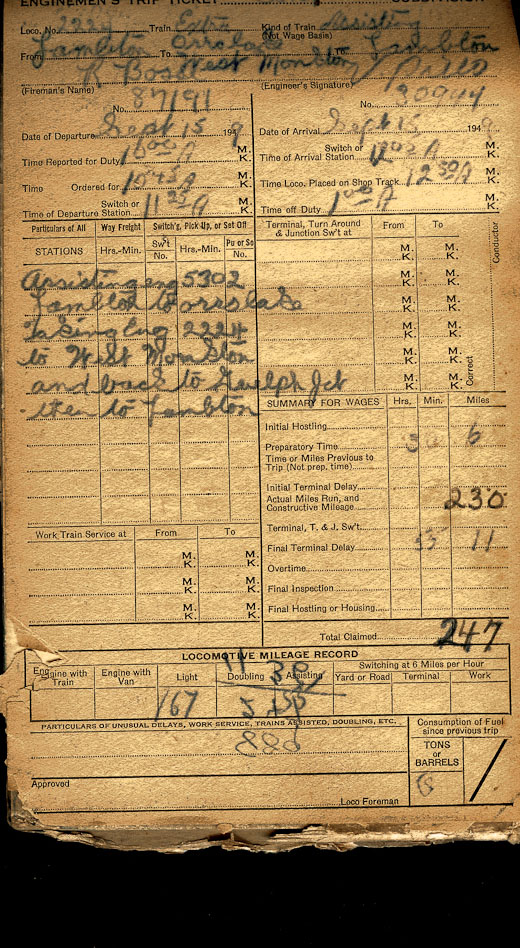 ENGINEMEN'S TRIP TICKET SUBDIVISION
Loco. No. 2224 Train Extra Kind of Train Assisting
(Not Wage Basis)
From Lambton To Lambton
West Monkton
(Fireman's Name) (Engineer's Signature)
No. 87191 No.
Date of Departure Sept 15 1949 Date of Arrival Sept 15 194
Time Reported for Duty M. K. Switch or Time of Arrival Station 12 02 A M. K.
Time Ordered for 10 45 A M. K. Time Loco. Placed on Shop Track 12 30 A M. K.
Switch or Time of Departure Station 11 25 A M. K. Time off Duty 1 00 A M. K.
Particulars of All Way Freight Switch'g, Pick Up, or Set Off Terminal, Turn Around & Junction Sw't at From To Conductor
STATIONS Hrs.-Min. Sw't No. Hrs.-Min. Pu or So No.
M. K. M. K.
Assisting eng 5302
M. K. M. K.
Lambton to orrs lake
M. K. M. K.
Taking Eng 2224
M. K. M. K.
to West Monkton
M. K. M. K.
and back to Guelph Jct
M. K. M. K. Correct
then to Lambton
SUMMARY FOR WAGES Hrs. Min. Miles
Initial Hostling
Preparatory Time 30 6
Time or Miles Previous to Trip (Not prep. time)
Initial Terminal Delay
Actual Miles Run, and Constructive Mileage 230
Terminal, T. & J. Sw't.
Work Train Service at From To
Final Terminal Delay 55 11
M. K. M. K.
Overtime
M. K. M. K.
Final Inspection
M. K. M. K.
Final Hostling or Housing
Total Claimed 247
LOCOMOTIVE MILEAGE RECORD
Engine with Train Engine with Van Light Doubling Assisting Switching at 6 Miles per Hour
Yard or Road Terminal Work
11 38
167
PARTICULARS OF UNUSUAL DELAYS, WORK SERVICE, TRAINS ASSISTED, DOUBLING, ETC. Consumption of Fuel since previous trip
TONS or BARRELS
8
Approved
Loco Foreman